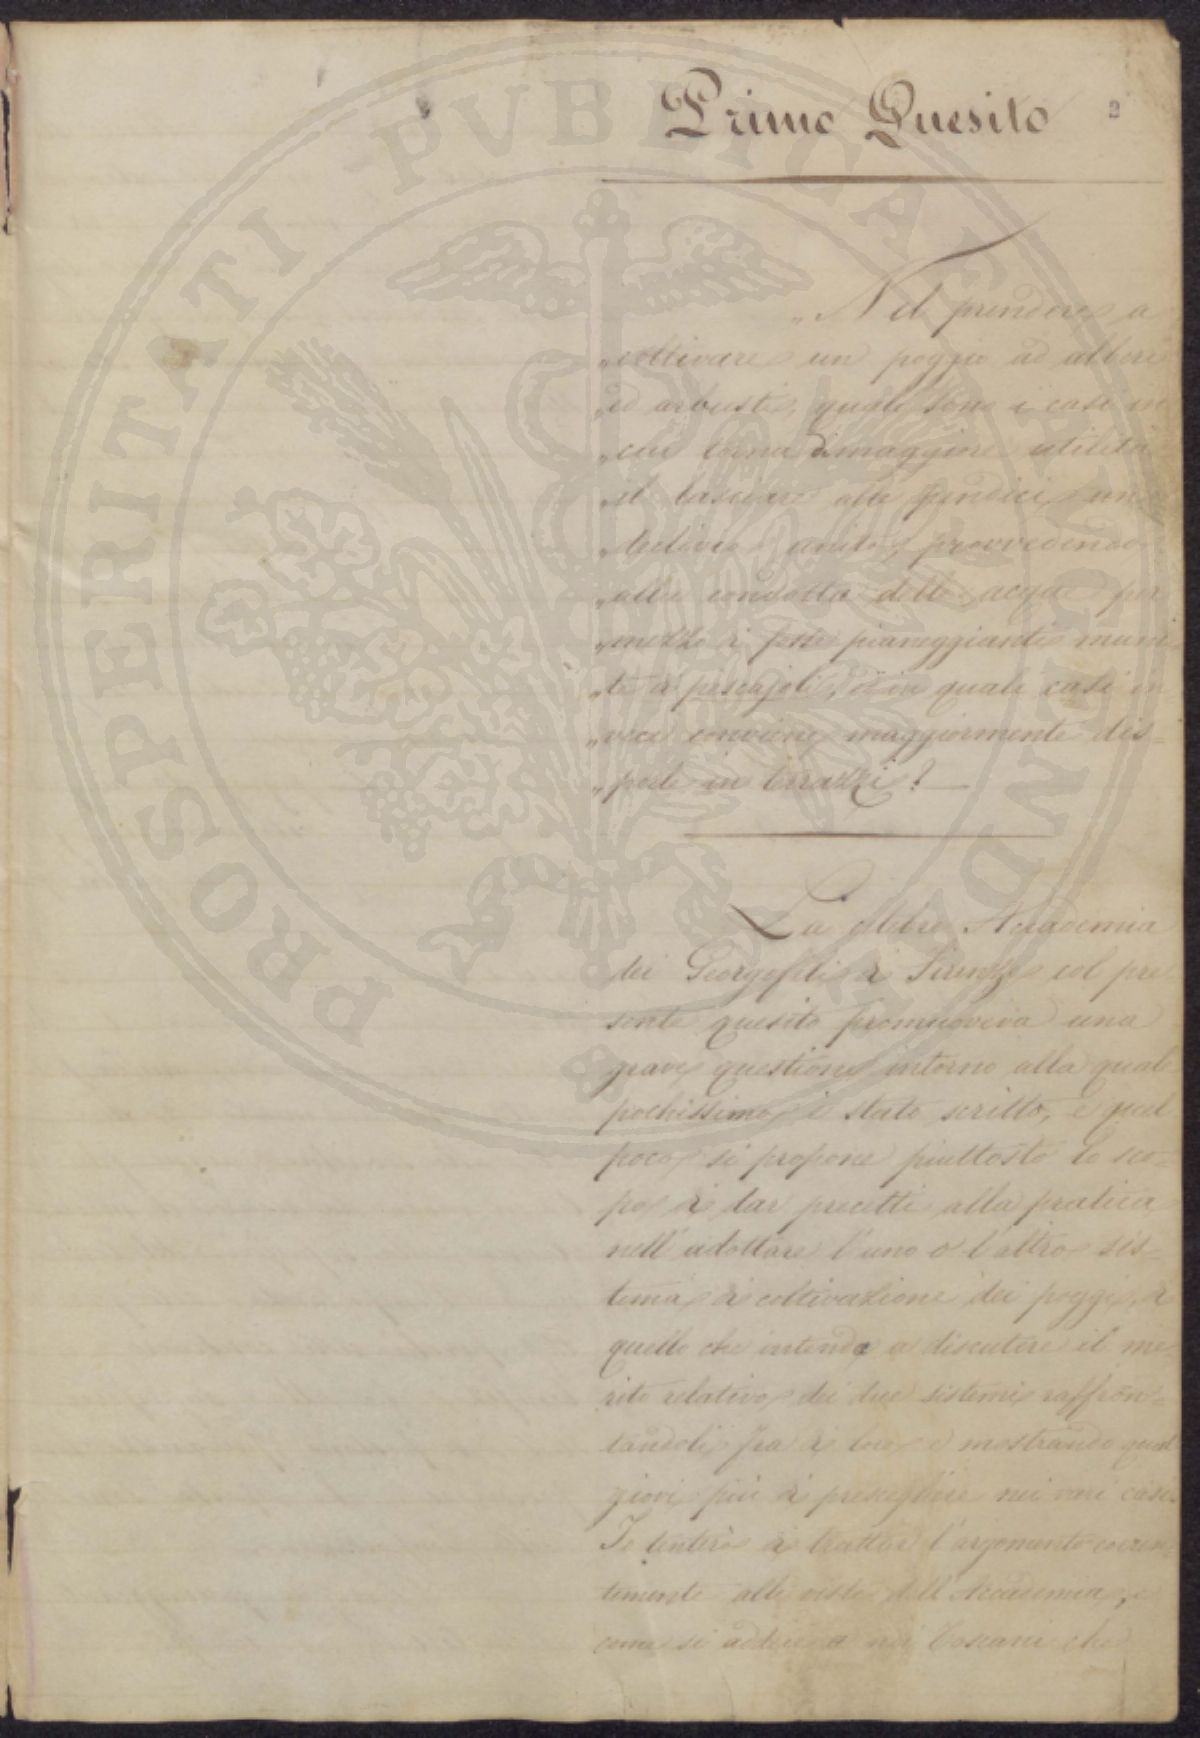 Primo Quesito
2
„ Nel prendere a
„ coltivare un poggio ad alberi
„ ed arbusti, quali sono i casi in
„ cui torna di maggiore utilità
„ il lasciare alle pendici un
„ declivio unito, provvedendo
„ alla condotta delle acque per
„ mezzo di fosse pianeggianti muni
„ te di pescajoli, ed in quali casi in
„ vece conviene maggiormente dis=
„ porle in terrazzi? —
La celebre Accademia
dei Georgofili di Firenze col pre
sente quesito promuoveva una
grave questione intorno alla quale
pochissimo è stato scritto, e quel
poco si propone piuttosto lo sco=
po di dar precetti alla pratica
nell'adottare l'uno o l'altro sis=
tema di coltivazione dei poggi, di
quello che intenda a discutere il me
rito relativo dei due sistemi raffron=
tandoli fra di loro e mostrando qual
giovi più di prescegliere nei vari casi.
Io tenterò di trattar l'argomento coeren=
temente alle viste dell'Accademia, e
come si addice a noi Toscani che
PROSPERITATI PVBLICAE AVGENDAE